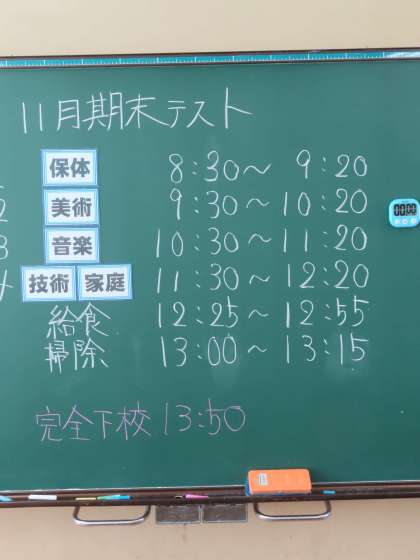 11月期末テスト
保体 8:30～ 9:20
2 美術 9:30～10:20
3 音楽 10:30～11:20
4 技術 家庭 11:30～12:20
給食 12:25～12:55
掃除 13:00～13:15
完全下校 13:50
00:00